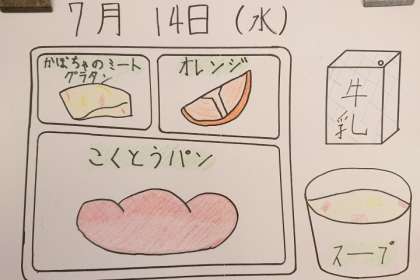 7月 14日(水)
かぼちゃのミート
グラタン
オレンジ
こくとうパン
牛
乳
スープ